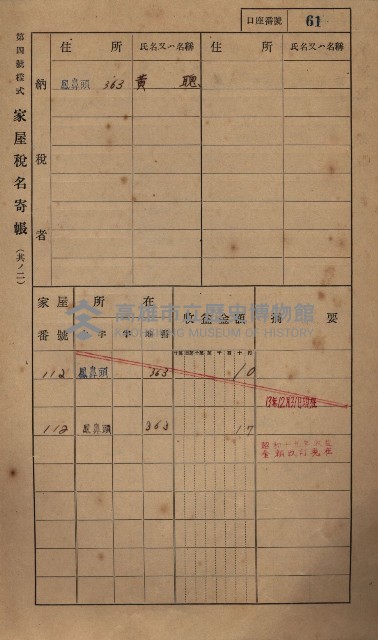 口座番號 61
第四號樣式 家屋稅名寄帳 (其ノ二)
納稅者
住所 氏名又ハ名稱 住所 氏名又ハ名稱
鳳鼻頭 363 黃聰
家屋番號 所在 收益金額 摘要
大字 字 地番
高雄市立歷史博物館
KAOHSIUNG MUSEUM OF HISTORY
112 鳳鼻頭 363 10
112 鳳鼻頭 363 17